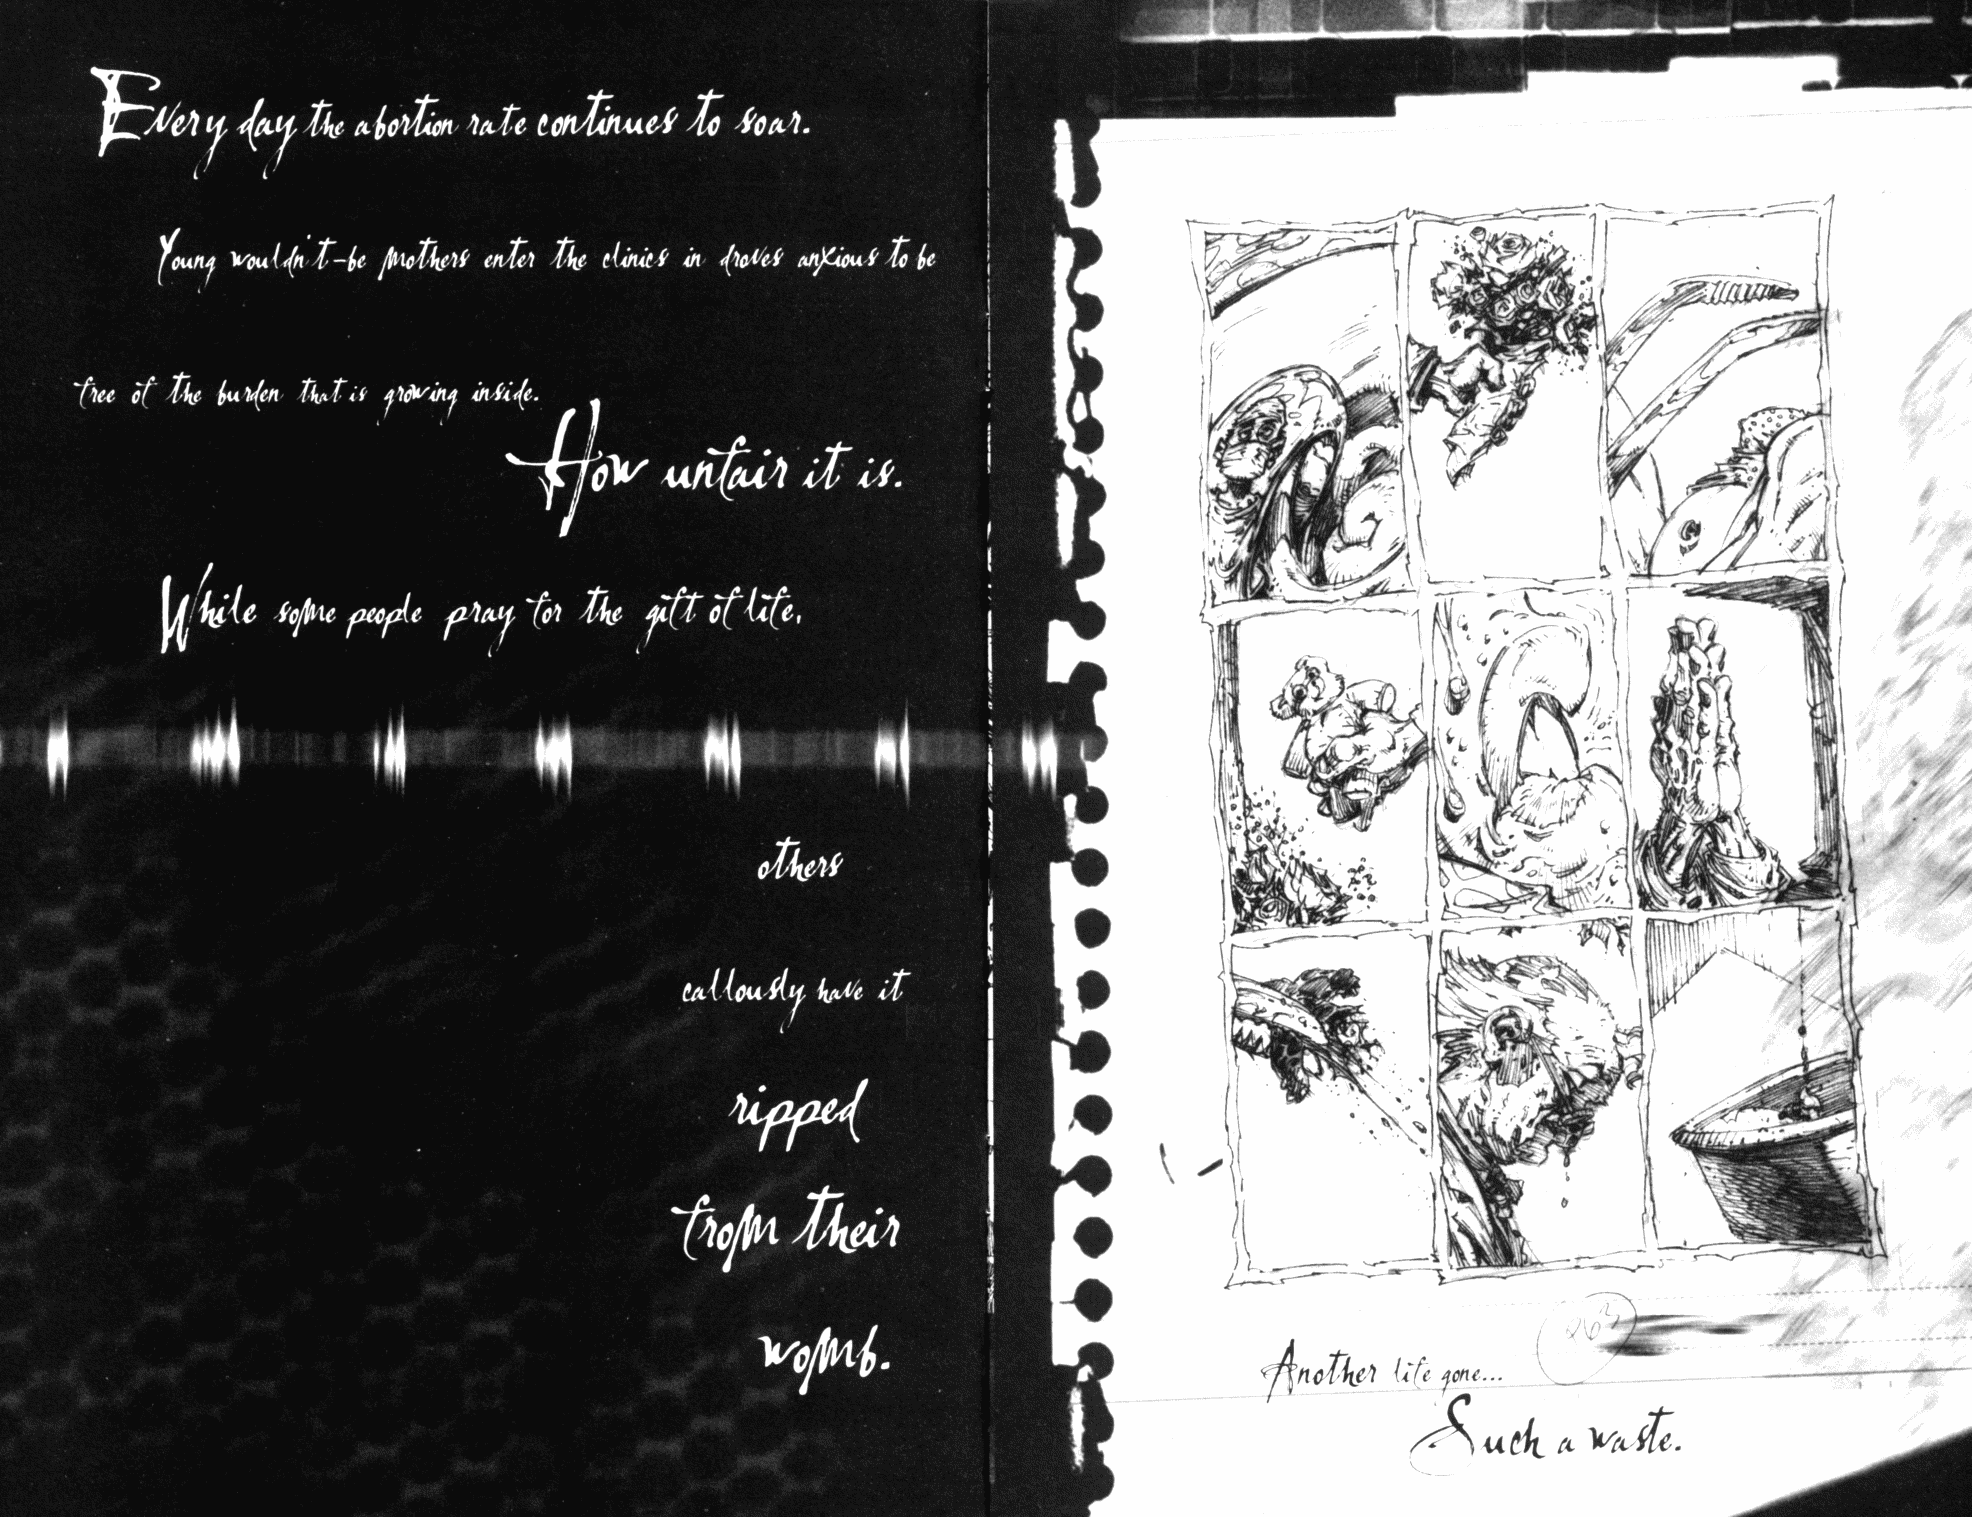 Every day the abortion rate continues to soar.
Young wouldn't-be mothers enter the clinics in droves anxious to be
free of the burden that is growing inside.
How unfair it is.
While some people pray for the gift of life,
others
callously have it
ripped
from their
womb.
263
Another life gone...
Such a waste.